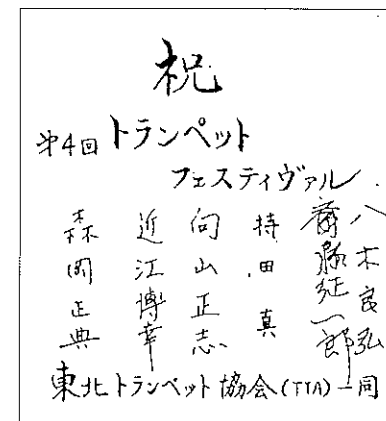 祝
第4回トランペット
フェスティヴァル
八木良弘
斎藤征一郎
持田真
向山正志
近江博幸
森岡正典
東北トランペット協会(TTA)一同